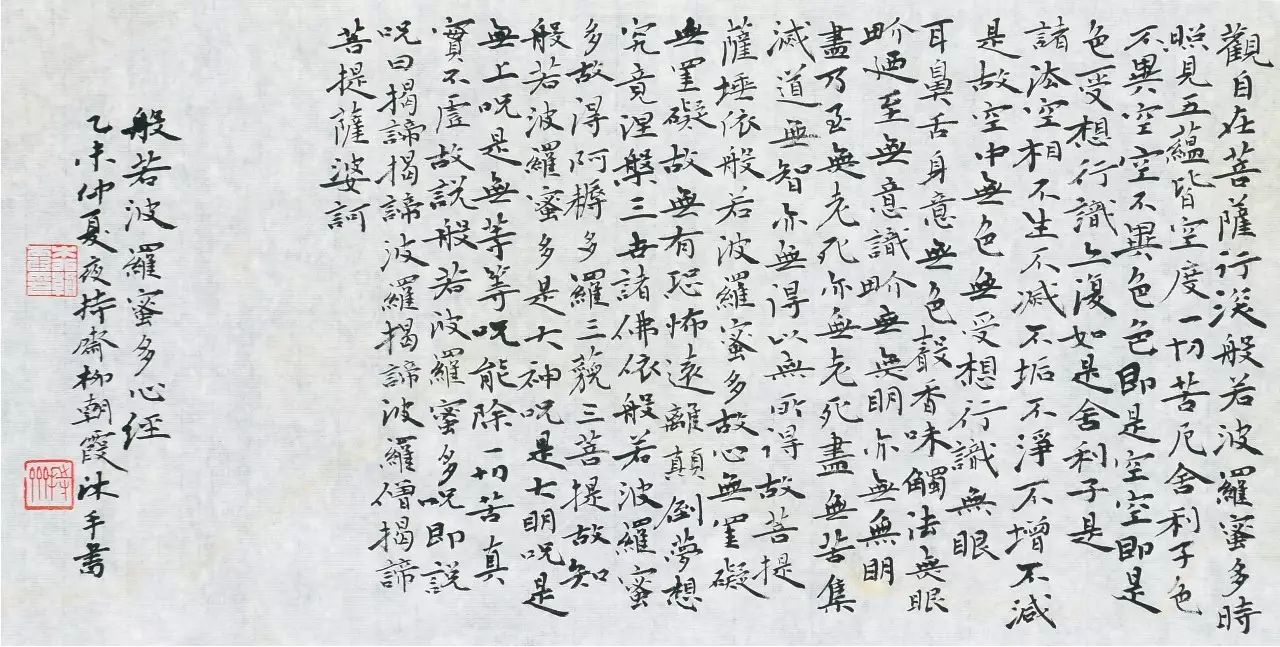 觀自在菩薩行深般若波羅蜜多時
照見五蘊皆空度一切苦厄舍利子色
不異空空不異色色即是空空即是
色受想行識亦復如是舍利子是
諸法空相不生不滅不垢不淨不增不減
是故空中無色無受想行識無眼
耳鼻舌身意無色聲香味觸法無眼
界迺至無意識界無無明亦無無明
盡乃至無老死亦無老死盡無苦集
滅道無智亦無得以無所得故菩提
薩埵依般若波羅蜜多故心無罣礙
無罣礙故無有恐怖遠離顛倒夢想
究竟涅槃三世諸佛依般若波羅蜜
多故得阿耨多羅三藐三菩提故知
般若波羅蜜多是大神呪是大明呪是
無上呪是無等等呪能除一切苦真
實不虛故說般若波羅蜜多呪即說
呪曰揭諦揭諦波羅揭諦波羅僧揭諦
菩提薩婆訶
般若波羅蜜多心經
乙未仲夏夜持齋柳朝霞沐手書